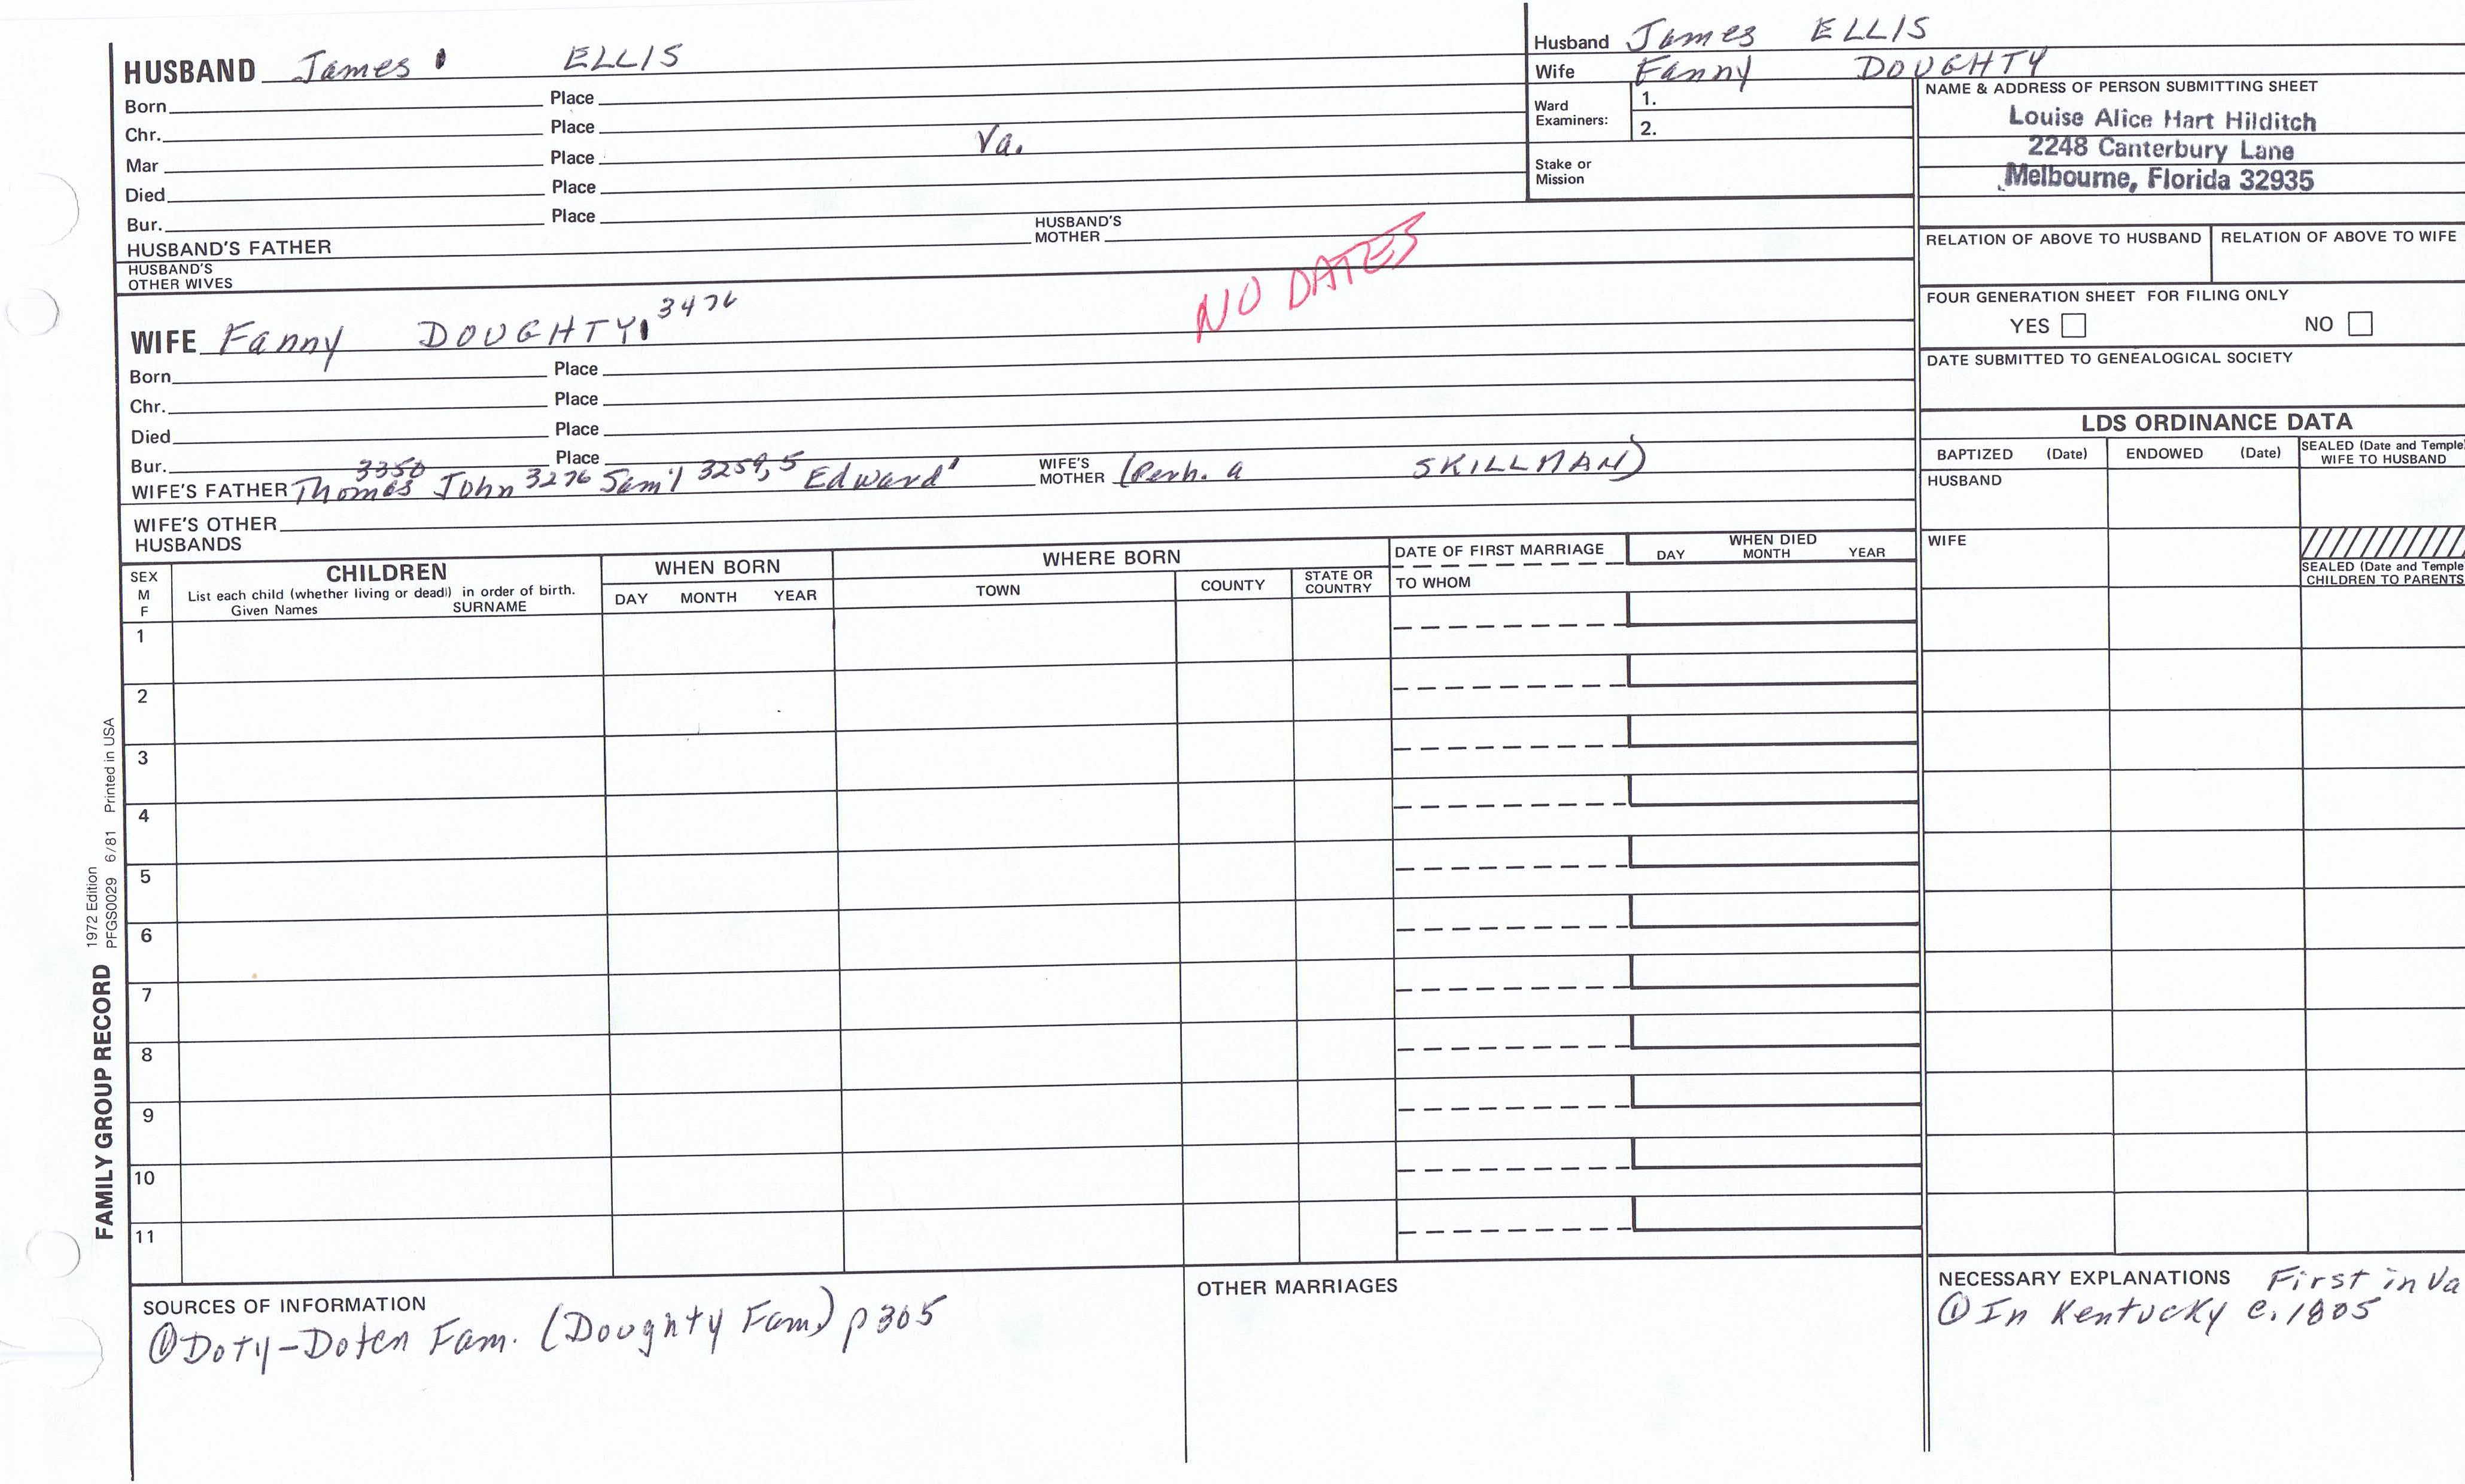 HUSBAND James ELLIS
Born Place
Chr. Place
Mar Place Va.
Died Place
Bur. Place
HUSBAND'S FATHER HUSBAND'S MOTHER
HUSBAND'S OTHER WIVES
NO DATES
WIFE Fanny DOUGHTY 3476
Born Place
Chr. Place
Died Place
Bur. Place
WIFE'S FATHER Thomas 3350 John 3276 Sam'l 3259,5 Edward' WIFE'S MOTHER (Perh. a SKILLMAN)
WIFE'S OTHER HUSBANDS
Husband James ELLIS
Wife Fanny DOUGHTY
Ward Examiners: 1.
2.
Stake or Mission
NAME & ADDRESS OF PERSON SUBMITTING SHEET
Louise Alice Hart Hilditch
2248 Canterbury Lane
Melbourne, Florida 32935
RELATION OF ABOVE TO HUSBAND RELATION OF ABOVE TO WIFE
FOUR GENERATION SHEET FOR FILING ONLY
YES NO
DATE SUBMITTED TO GENEALOGICAL SOCIETY
LDS ORDINANCE DATA
BAPTIZED (Date) ENDOWED (Date) SEALED (Date and Temple) WIFE TO HUSBAND
HUSBAND
WIFE
SEALED (Date and Temple CHILDREN TO PARENTS
SEX M F
CHILDREN
List each child (whether living or dead) in order of birth.
Given Names SURNAME
WHEN BORN
DAY MONTH YEAR
WHERE BORN
TOWN COUNTY STATE OR COUNTRY
DATE OF FIRST MARRIAGE
TO WHOM
WHEN DIED
DAY MONTH YEAR
1
2
3
4
5
6
7
8
9
10
11
FAMILY GROUP RECORD 1972 Edition
PFGS0029 6/81 Printed in USA
SOURCES OF INFORMATION
① Doty-Doten Fam. (Doughty Fam) p 305
OTHER MARRIAGES
NECESSARY EXPLANATIONS First in Va
① In Kentucky c. 1805